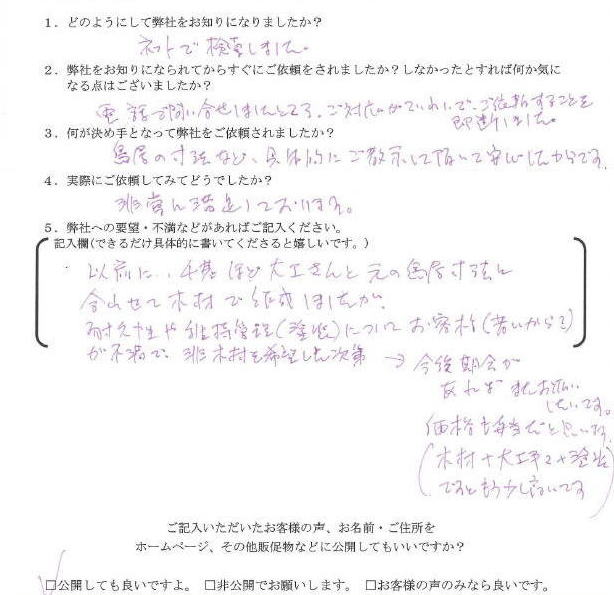 1. どのようにして弊社をお知りになりましたか?
ネットで検索しました。
2. 弊社をお知りになられてからすぐにご依頼をされましたか?しなかったとすれば何か気に
なる点はございましたか?
電話で問い合せしましたところ、ご対応がていねいで、ご依頼することを
即断しました。
3. 何が決め手となって弊社をご依頼されましたか?
鳥居の寸法など、具体的にご教示して頂いて安心したからです。
4. 実際にご依頼してみてどうでしたか?
非常に満足しております。
5. 弊社への要望・不満などがあればご記入ください。
記入欄(できるだけ具体的に書いてくださると嬉しいです。)
以前に、1基ほど大工さんと元の鳥居寸法に
合わせて木材で作成しましたが、
耐久性や維持管理(塗装)について お客様
が不満で、非木材を希望した次第 → 今後機会が
あれば またお願い
したいです。
価格も妥当だと思います。
(木材+大工手間+塗装
ですともう少し高いです)
ご記入いただいたお客様の声、お名前・ご住所を
ホームページ、その他販促物などに公開してもいいですか?
□公開しても良いですよ。 □非公開でお願いします。 □お客様の声のみなら良いです。